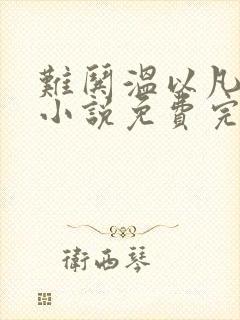 難鬨溫以凡
小說免費完
衛西琴